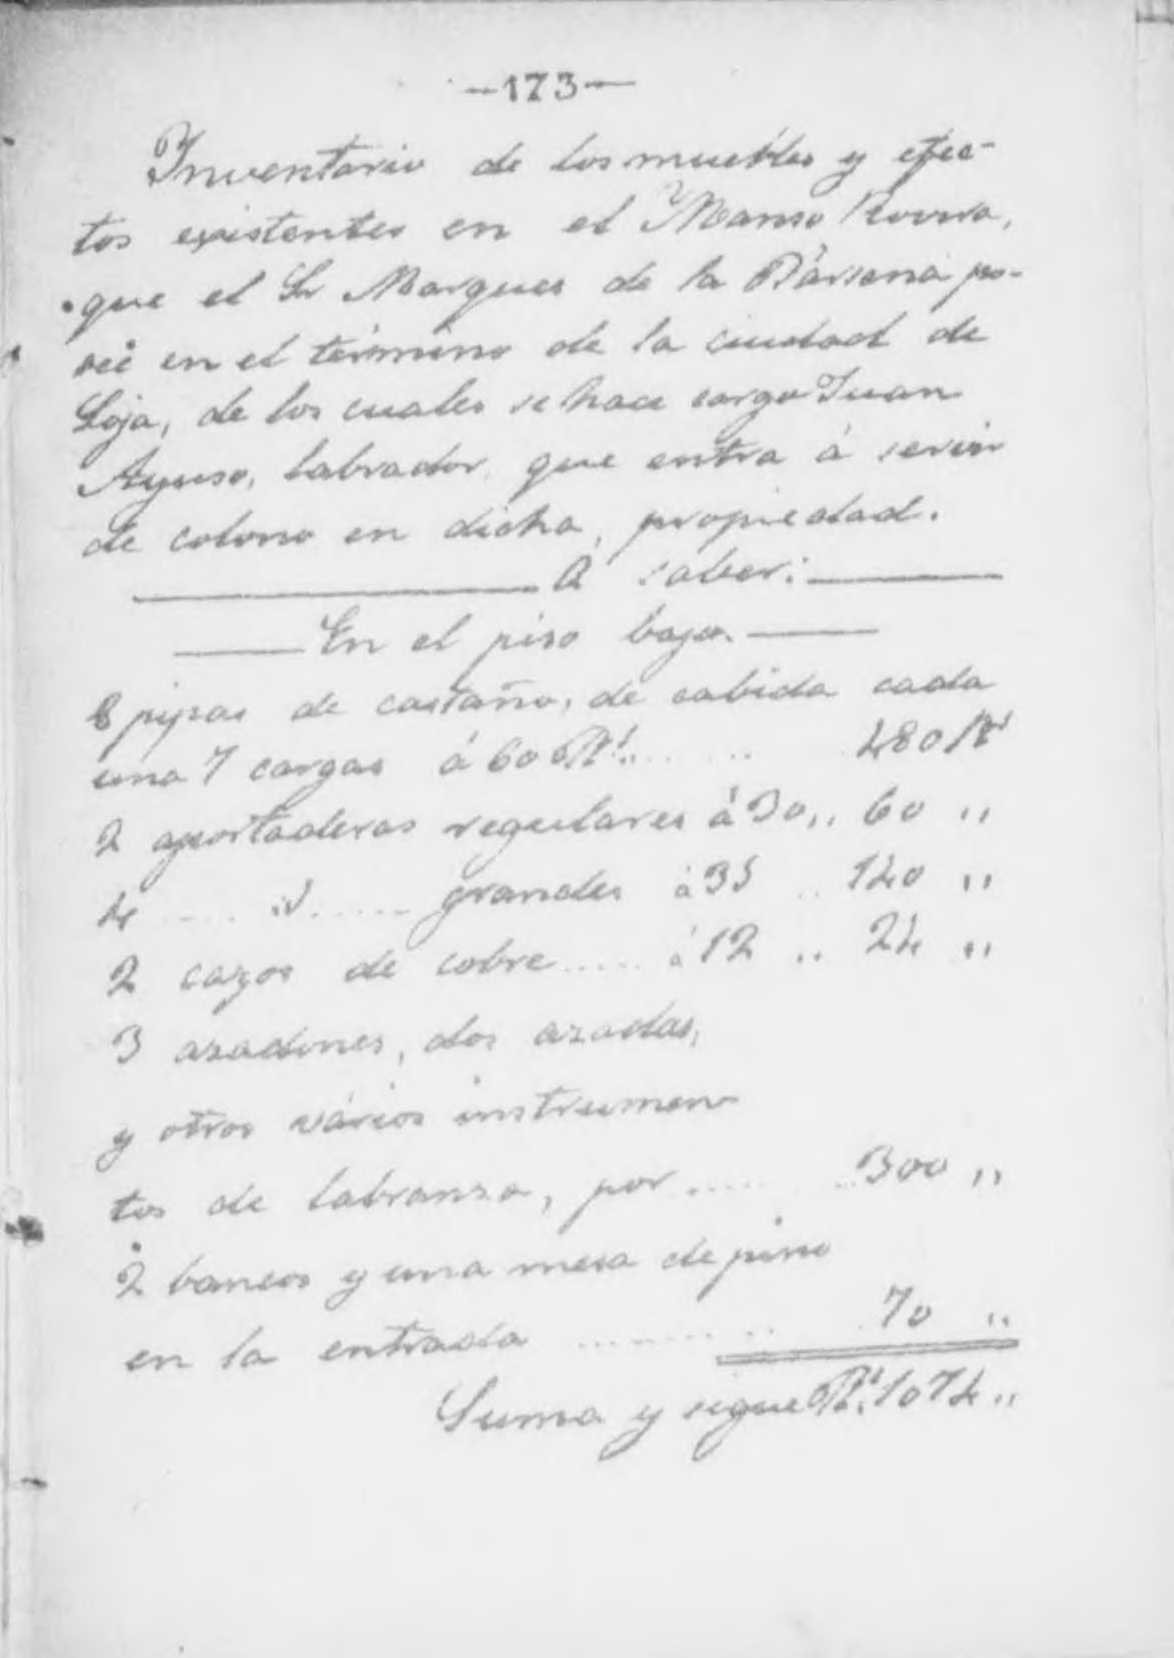 —173—
Inventario de los muebles y efec-
tos existentes en el Manso Rovira,
que el Sr Marques de la Dársena po-
séé en el término de la ciudad de
Loja, de los cuales se hace cargo Juan
Ayuso, labrador, que entra á servir
de colono en dicha, propiedad.
A saber:
En el piso bajo.
8 pipas de castaño, de cabida cada
una 7 cargas á 60 Rs. .. 480 Rs
2 aportaderas regulares á 30 ,, 60 ,,
4 .... id. ..... grandes á 35 .. 140 ,,
2 cazos de cobre ..... á 12 .. 24 ,,
3 azadones, dos azadas,
y otros vários instrumen
tos de labranza, por ..... 300 ,,
2 bancos y una mesa de pino
en la entrada ........ 70 ,,
Suma y sigue Rs. 1074 ,,